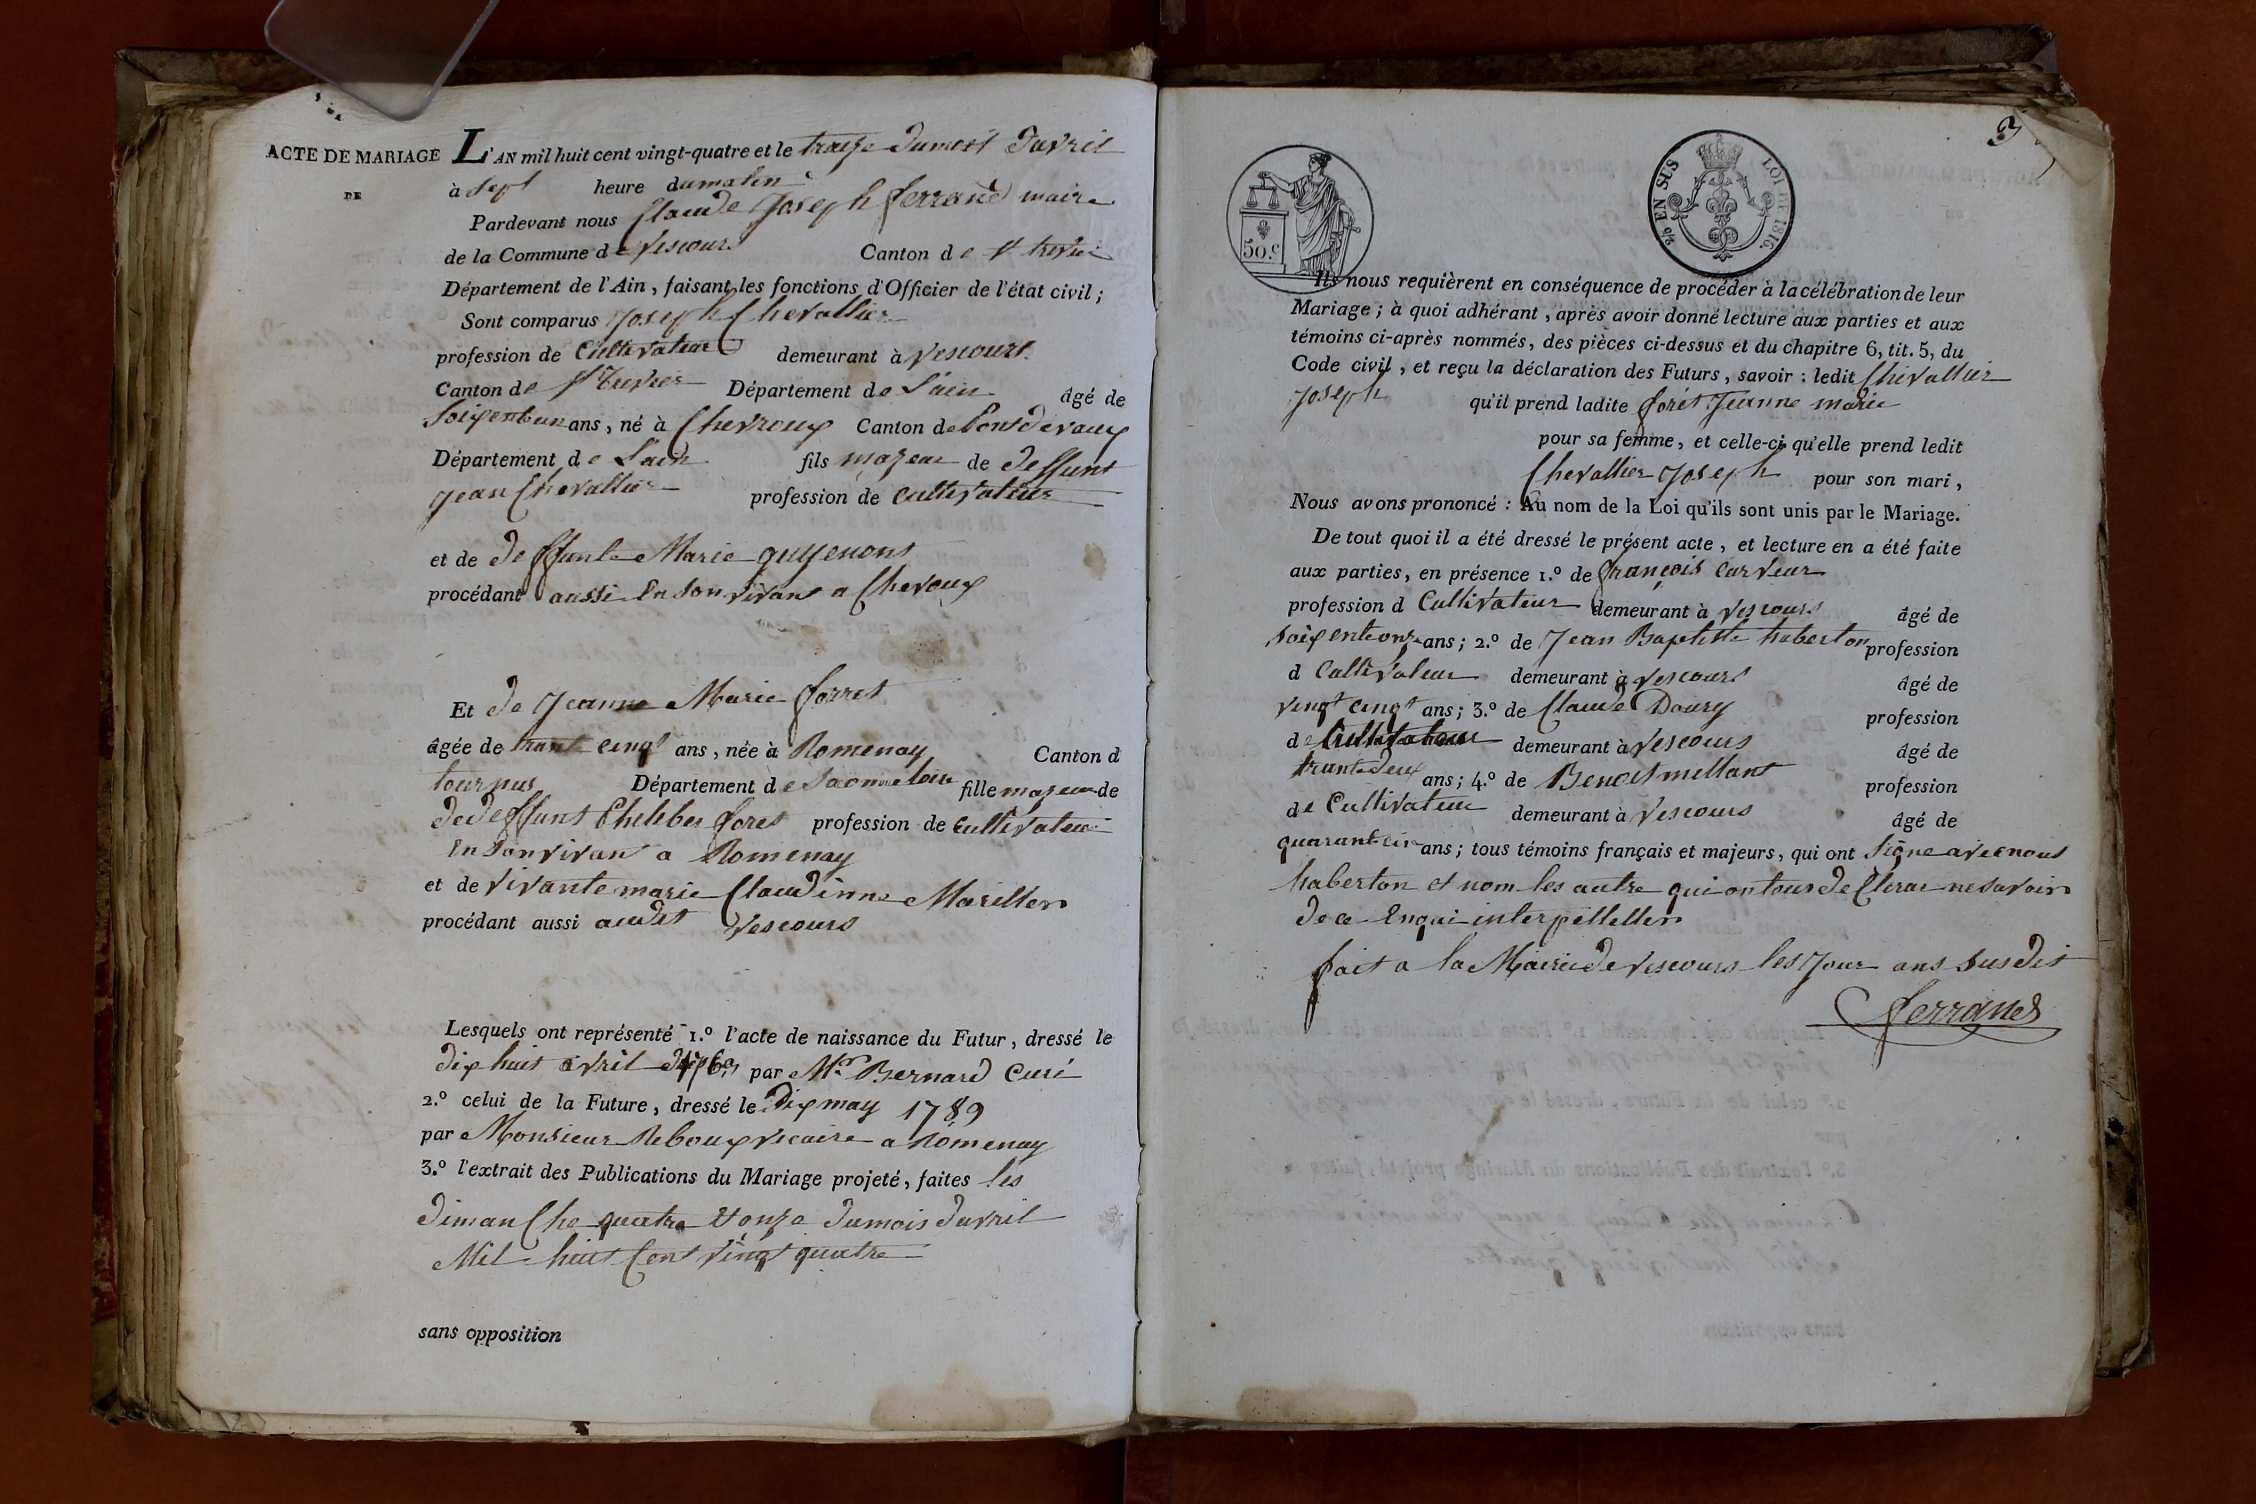 ACTE DE MARIAGE
DE
L'AN mil huit cent vingt-quatre et le traise dumois Davril
à sept heure dumatin
Pardevant nous Claude Joseph ferrand maire
de la Commune de Vescours Canton de St trivier
Département de l'Ain, faisant les fonctions d'Officier de l'état civil;
Sont comparus Joseph Chevallier
profession de Cultivateur demeurant à Vescours
Canton de St Trivier Département de L'ain âgé de
Soixent un ans, né à Chevroux Canton de Pontdevaux
Département de L'ain fils majeur de deffunt
Jean Chevallier profession de Cultivateur
et de deffunte Marie guyenont
procédant aussi En son vivant a Chevoux
Et de Jeanne Marie forret
âgée de trante cinqt ans, née à Romenay Canton d
tournus Département de Saonneloire fille majeur de
de deffunt Philiber foret profession de Cultivateur
En son vivan a Romenay
et de vivante marie Claudinne Marillier
procédant aussi audit Vescours
Lesquels ont représenté 1.º l'acte de naissance du Futur, dressé le
dix huit avril par Mr Bernard Curé
2.º celui de la Future, dressé le Dix may 1789
par Monsieur Reboux vicaire a Romenay
3.º l'extrait des Publications du Mariage projeté, faites les
dimanche quatre et onze dumois davril
Mil huit Cent vingt quatre
sans opposition
3
50.c
2/5 EN SUS LOI DE 1816.
Ils nous requièrent en conséquence de procéder à la célébration de leur
Mariage; à quoi adhérant, après avoir donné lecture aux parties et aux
témoins ci-après nommés, des pièces ci-dessus et du chapitre 6, tit. 5, du
Code civil, et reçu la déclaration des Futurs, savoir: ledit Chevallier
Joseph qu'il prend ladite foret Jeanne marie
pour sa femme, et celle-ci qu'elle prend ledit
Chevallier Joseph pour son mari,
Nous avons prononcé: Au nom de la Loi qu'ils sont unis par le Mariage.
De tout quoi il a été dressé le présent acte, et lecture en a été faite
aux parties, en présence 1.º de françois Carveur
profession d Cultivateur demeurant à Vescours âgé de
soixenteonze ans; 2.º de Jean Baptiste haberton profession
d Cultivateur demeurant à Vescours âgé de
vingt cinqt ans; 3.º de Claude Doury profession
de Cultivateur demeurant à Vescours âgé de
trante deux ans; 4.º de Benoit millant profession
de Cultivateur demeurant à Vescours âgé de
quarant cin ans; tous témoins français et majeurs, qui ont Signe avec nous
haberton et nom les autre qui on tous de Clerae ne savoir
de ce Enqui interpelleller
fait a la Mairie de Vescours les Jour ans susdit
ferrand